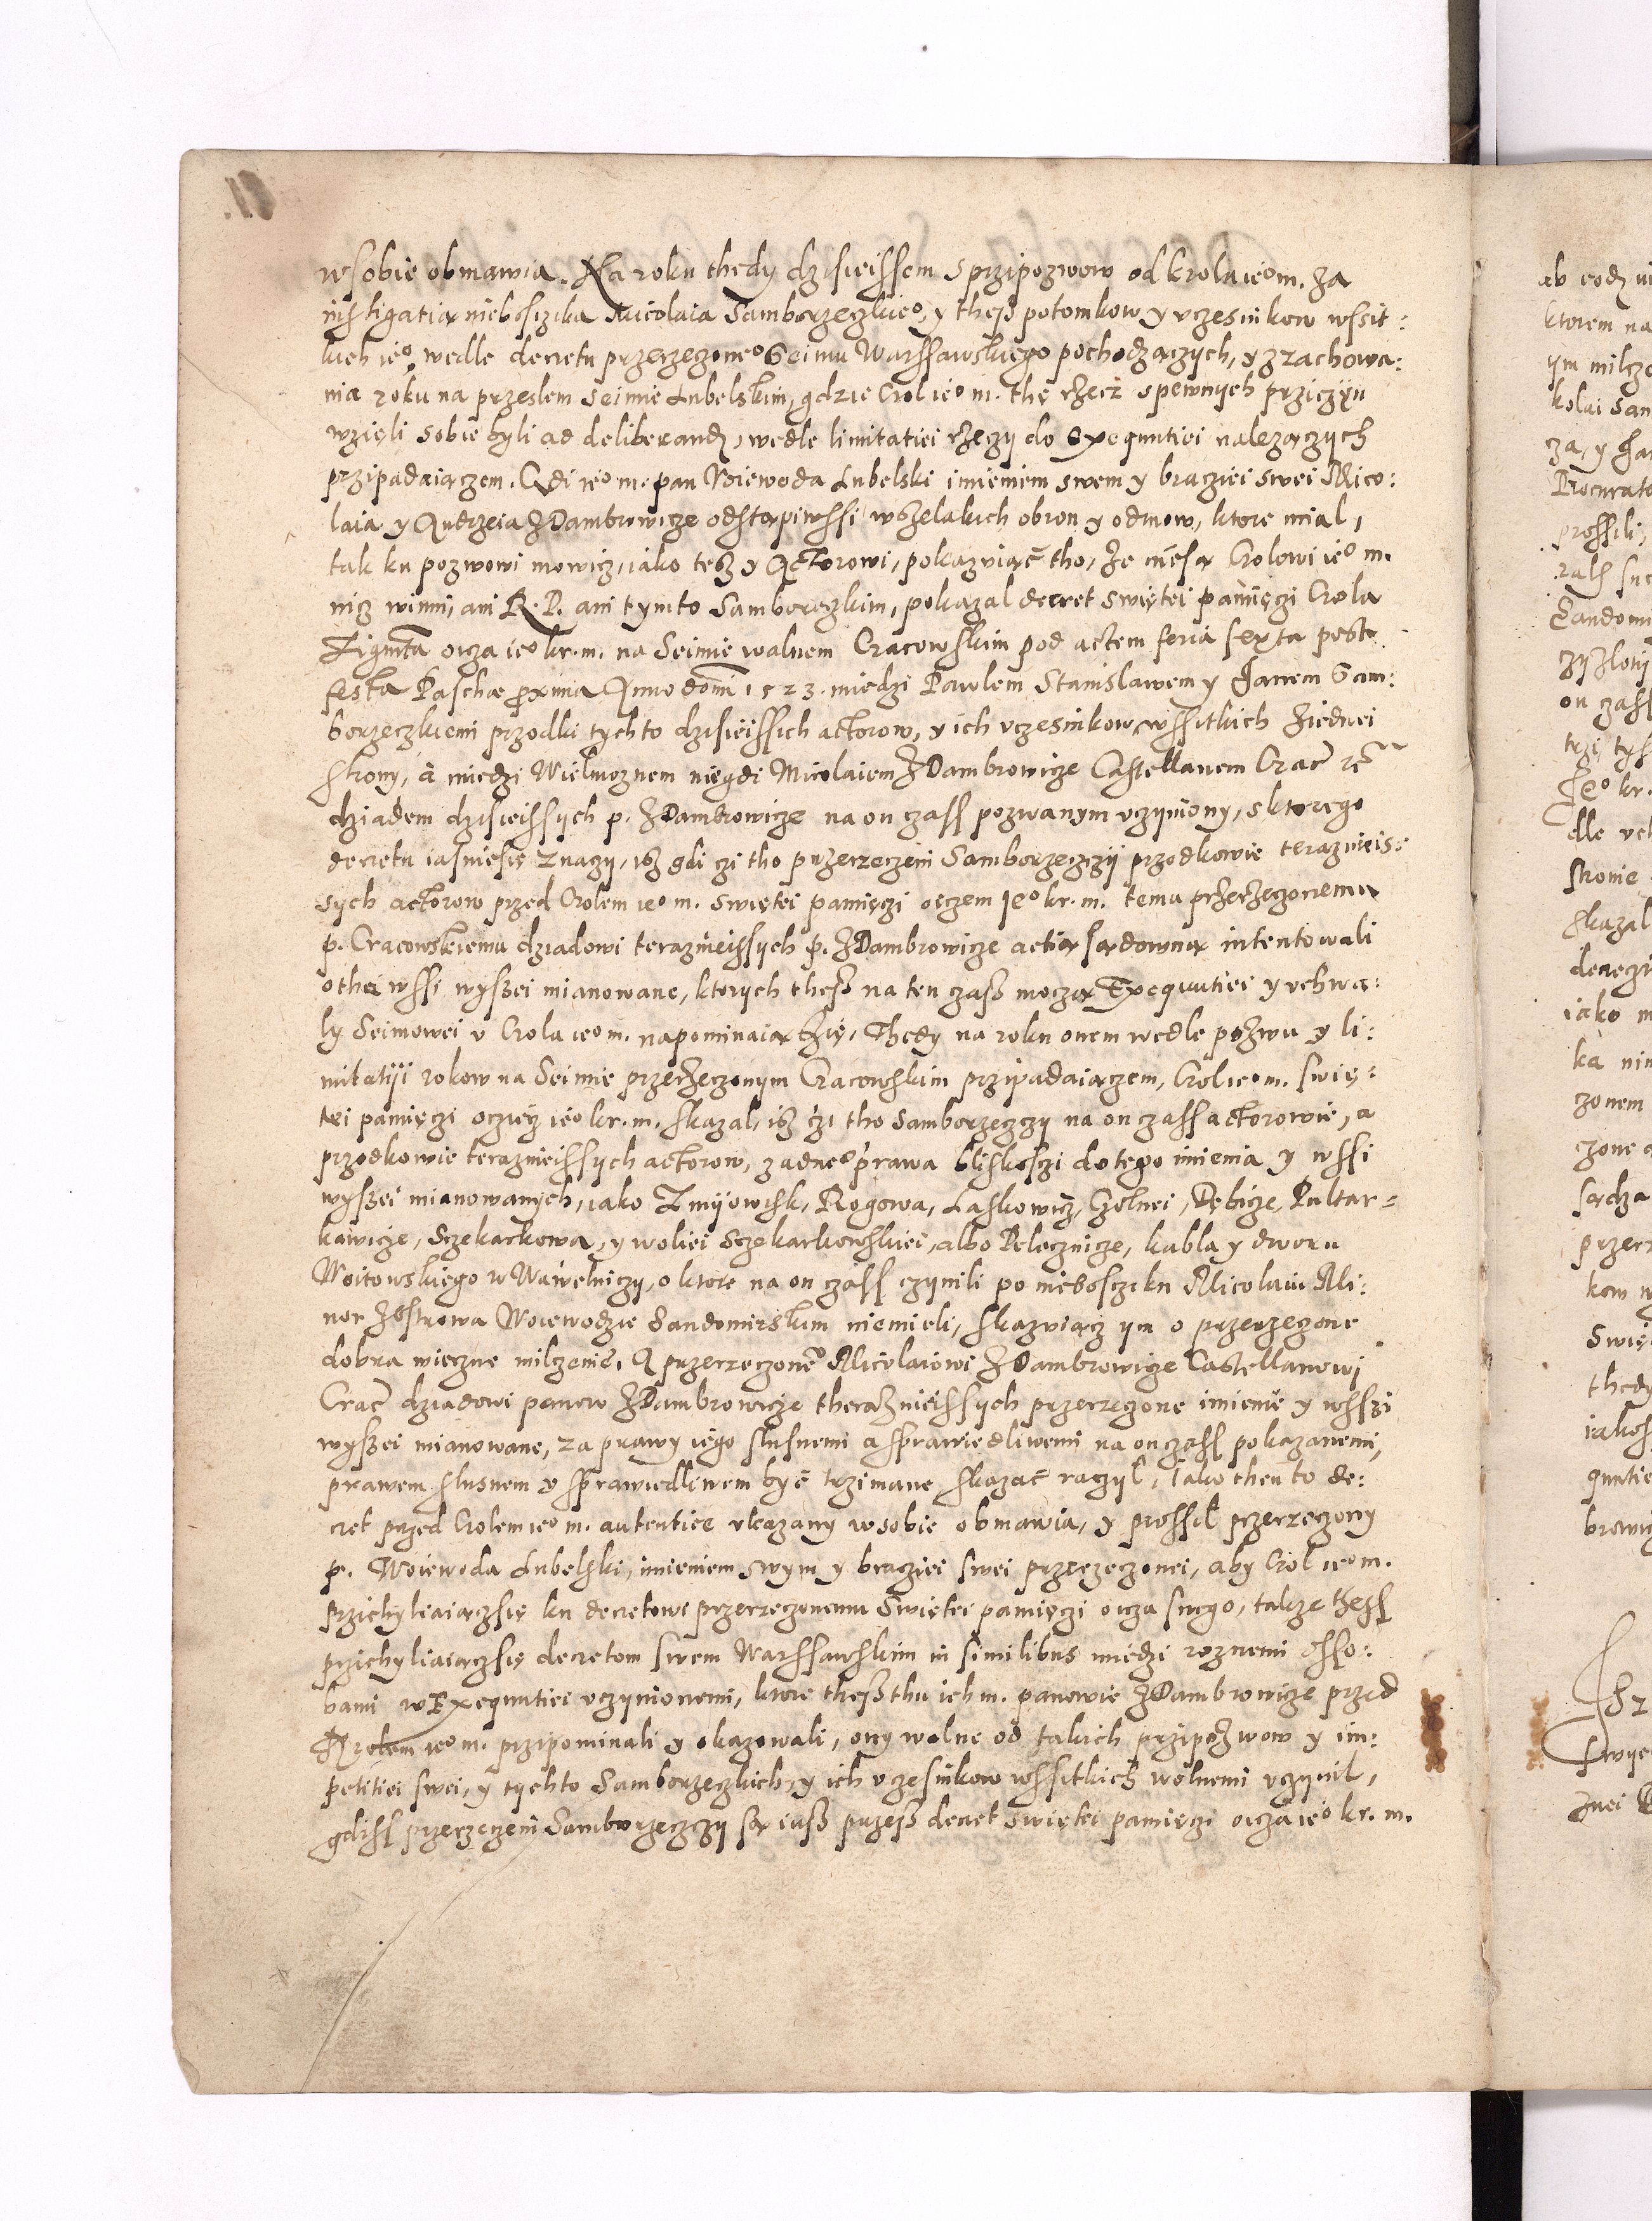 wsobie obmawia. Na roku thedy dzisieissem s przipozwow od krola ieo m. za
instigatią nieboszczika Micolaia Samborzeczkieo, y thesz potomkow y vczesnikow wssit:
kich ieo, wedle decretu przerzeczoneo Seimu Warssawskiego pochodzączych, y z rachowa:
nia roku na przeslem Seimie Lubelskim, gdzie Crol ieo m. thę rzecz s pewnych prziczyn
wzięli sobie byli ad deliberand, wedle limitatiei rzeczy do exequutiei nalezączych
przipadaiączem. Gdi ieo m. pan Woiewoda Lubelski imieniem swem y bracziei swei Mico:
laia y Andrzeia z Dambrowicze odstąpiwssi wszelakich obron y odmow, ktore mial,
tak ku pozwowi mowicz, iako tesz y Actorowi, pokazuiąc tho, ze nie są Crolowi ieo m.
nicz winni, ani R. P. ani tymto Samboreczkim, pokazal decret swiętei pamięczi Crola
Zigmta oicza ieo kr. m. na Seimie walnem Cracowskim pod actem feria sexta post
festa Paschæ proxima Anno domi 1523. miedzi Pawlem Stanislawem y Janem Sam:
borzeczkiemi przodki tychto dzisieissich actorow, y ich vczesnikow wssitkich z iednei
strony, à miedzi Wielmoznem niegdi Micolaiem z Dambrowicze Castellanem Crac etc
dziadem dzisieissych p. z Dambrowicze na on czass pozwanym vczyniony, s ktorego
decretu iasniesię znaczy, isz gdi czi tho przerzeczeni Samborzeczczij przodkowie teraznieis:
sych actorow przed Crolem ieo m. swiętei pamięczi oiczem ieo kr. m. temu przerzeczonemu
p. Cracowskiemu dziadowi terazniejssych p. z Dambrowicze actią sądowną intentowali
o thei wssi wysszei mianowane, ktorych thesz na ten czass moczą Exequutiei y vchwa:
ly Seimowei v Crola ieo m. napominaią czię, Thedy na roku onem wedle pozwu y li:
mitatiji rokow na Seimie przerzeczonym Cracowskim przipadaiączem, Crol ieo m. swię:
tei pamięczi ocziecz ieo kr. m. skazal, isz czi tho Samborzeczczy na on czass actorowie, a
przodkowie terazneissych actorow, zadneo prawa bliskosczi do tego imienia y wssi
wysszei mianowanych, iako Zmijowisk, Rogowa, Laskowicz, Czolnei, Dębicze, Pultar=
kawicze, Sczekarkowa, y woliei Sczekarkowskiei, albo Pelecznicze, kabla y dworu
Woitowskiego w Wawelniczy, o ktore na on czass czynili po nieboscziku Micolaiu Mi:
nor z Ostrowa Woiewodzie Sandomirskim niemieli, skazuiącz ym o przerzeczone
dobra wieczne milczenie. A przerzeczonem Micolaiowi z Dambrowicze Castellanowi
Crac dziadowi panow z Dambrowicze theraznieissych przerzeczone imienie y wsszi
wysszei mianowane, za prawy iego slusnemi a sprawiedliwemi na on czass pokazanemi,
prawem slusnem y sprawiedliwem być trzimane skazać raczyl, Iako then to de:
cret przed Crolem ieo m. autentice vkazany w sobie obmawia, y prossil przerzeczony
p. Woiewoda Lubelski, imieniem swym y bracziei swei przerzeczonei, aby Crol ieo m.
przichyliaiączsię ku decretowi przerzeczonemu Swiętei pamięczi oicza swego, takze thess
przichyliaiączsię decretom swem Warssawskim in similibus miedzi roznemi osso:
bami w Exequutiei vczynionemi, ktore thesz thu ich m. panowie z Dambrowicze przed
Krolem ieo m. przipominali y okazowali, ony wolne od takich przipozwow y im:
petitiei swei, y tychto Samborzeczkich, y ich vczesnikow wssitkich wolnemi vczynil,
gdiss przerzeczeni Samborzeczczy są iusz przesz decret swiętei pamięczi oicza ieo kr. m.